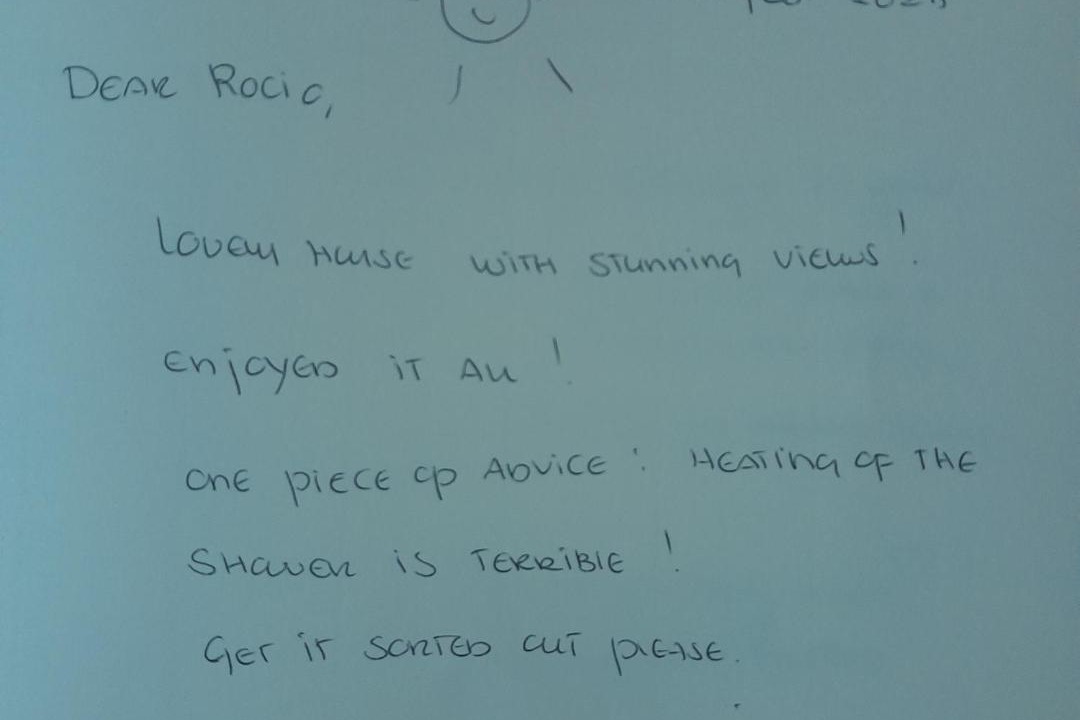 DEAR ROCIO,
LOVELY HOUSE WITH STUNNING VIEWS!
ENJOYED IT ALL!
ONE PIECE OF ADVICE: HEATING OF THE
SHOWER IS TERRIBLE!
GET IT SORTED OUT PLEASE.